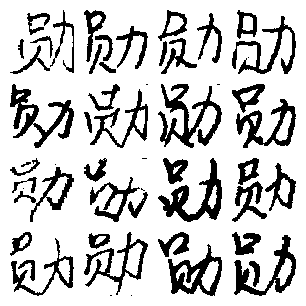 勋勋勋勋
勋勋勋勋
勋勋勋勋
勋勋勋勋